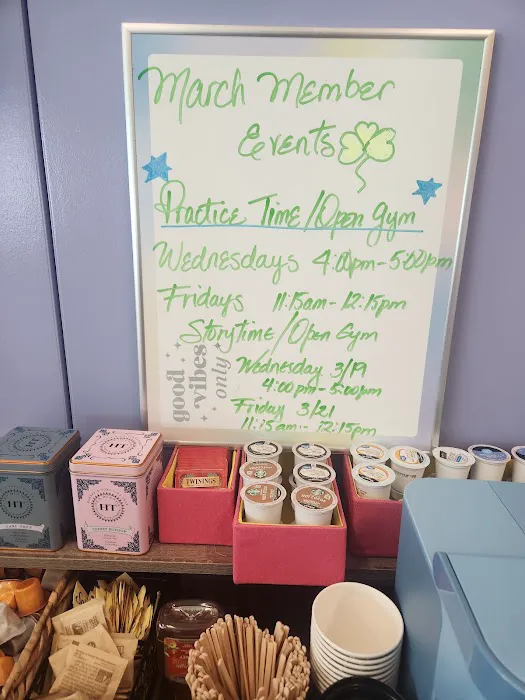 March Member
Events
Practice Time/Open Gym
Wednesdays 4:00pm-5:00pm
Fridays 11:15am-12:15pm
Storytime/Open Gym
Wednesday 3/19
4:00pm-5:00pm
Friday 3/21
11:15am-12:15pm
good
vibes
only
HT
HT
TWININGS